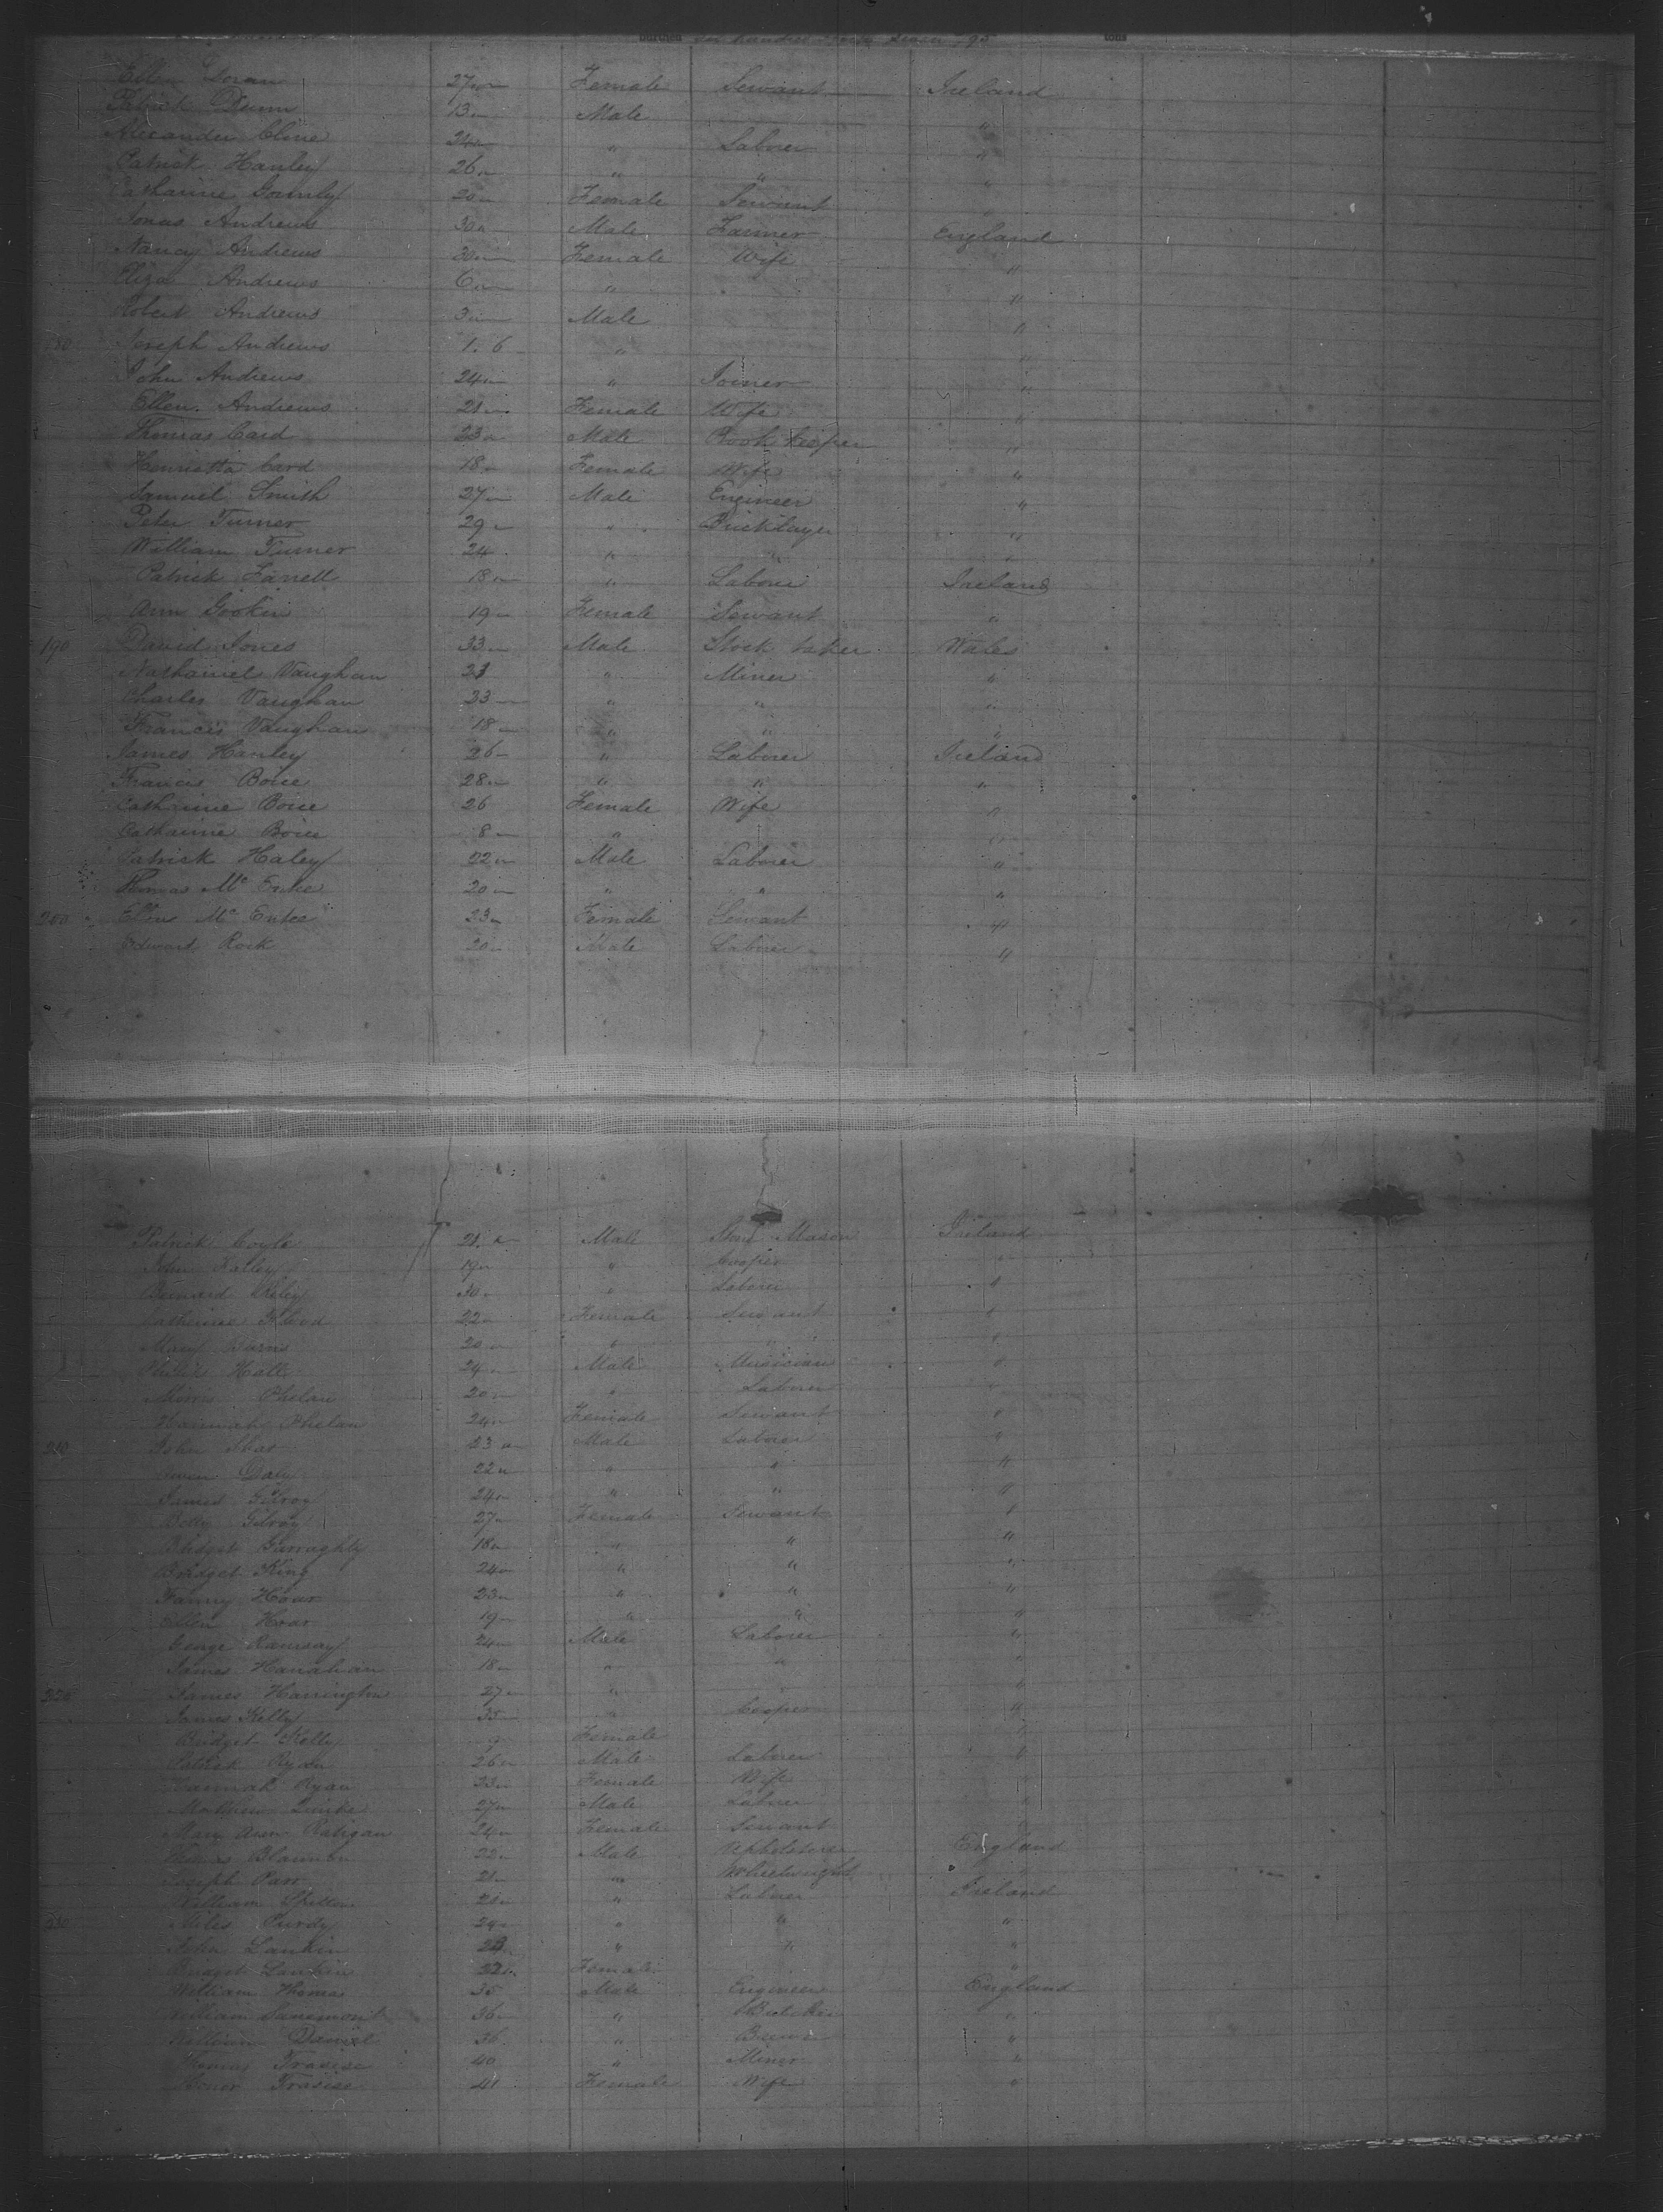 burden Six hundred Forty Seven /95 tons
Ellen Doran 27 Female Servant Ireland
Patrick Dunn 13 Male "
Alexander Cline 24 " Laborer "
Patrick Hanley 26 " " "
Catharine Gormly 20 Female Servant "
Jonas Andrews 30 Male Farmer England
Nancy Andrews 30 Female Wife "
Eliza Andrews 6 " "
Robert Andrews 3 Male "
Joseph Andrews 1.6 " "
John Andrews 24 " Joiner "
Ellen Andrews 21 Female Wife "
Thomas Card 23 Male Book keeper "
Henrietta Card 18 Female Wife "
Samuel Smith 27 Male Engineer "
Peter Turner 29 " Bricklayer "
William Turner 24 " " "
Patrick Farrell 18 " Laborer Ireland
Ann Gookin 19 Female Servant "
190 David Jones 33 Male Stock taker Wales
Nathaniel Vaughan 21 " Miner "
Charles Vaughan 23 " " "
Francis Vaughan 18 " " "
James Hanley 26 " Laborer Ireland
Francis Boice 28 " " "
Catharine Boice 26 Female Wife "
Catharine Boice 8 " "
Patrick Haley 22 Male Laborer "
Thomas Mc Entee 20 " " "
200 Ellen Mc Entee 23 Female Servant "
Edward Rock 20 Male Laborer "
Patrick Coyle 21 Male Stone Mason Ireland
John Kalley 19 " Cooper "
Bernard Riley 30 " Laborer "
Catherine Flood 22 Female Servant "
Mary Burns 20 " " "
Philip Hall 24 Male Musician "
Phelan 20 " Laborer "
Hannah Phelan 24 Female Servant "
210 John 23 Male Laborer "
Owen Daly 22 " " "
James Gilroy 24 " " "
Betty Gilroy 27 Female Servant "
Bridget Garraghty 18 " " "
Bridget King 24 " " "
Fanny Hoar 23 " " "
Ellen Hoar 19 " " "
George Ramsay 24 Male Laborer "
James Hanahan 18 " " "
220 James Harrington 27 " " "
James Kelly 35 " Cooper "
Bridget Kelly Female "
Patrick Ryan 26 Male Laborer "
Hannah Ryan 23 Female Wife "
Mathew 27 Male Laborer "
Mary Ann Ratigan 24 Female Servant "
Thomas 22 Male Upholsterer England
Joseph Parr 21 " Wheelwright "
William 21 " Laborer Ireland
Miles Purdy 24 " " "
John Larkin " " "
Bridget Larkin 22 Female "
William Thomas 35 Male Engineer England
William 36 " Butcher "
William Daniel 36 " Brewer "
Thomas Trasise 40 " Miner "
Trasise 41 Female Wife "